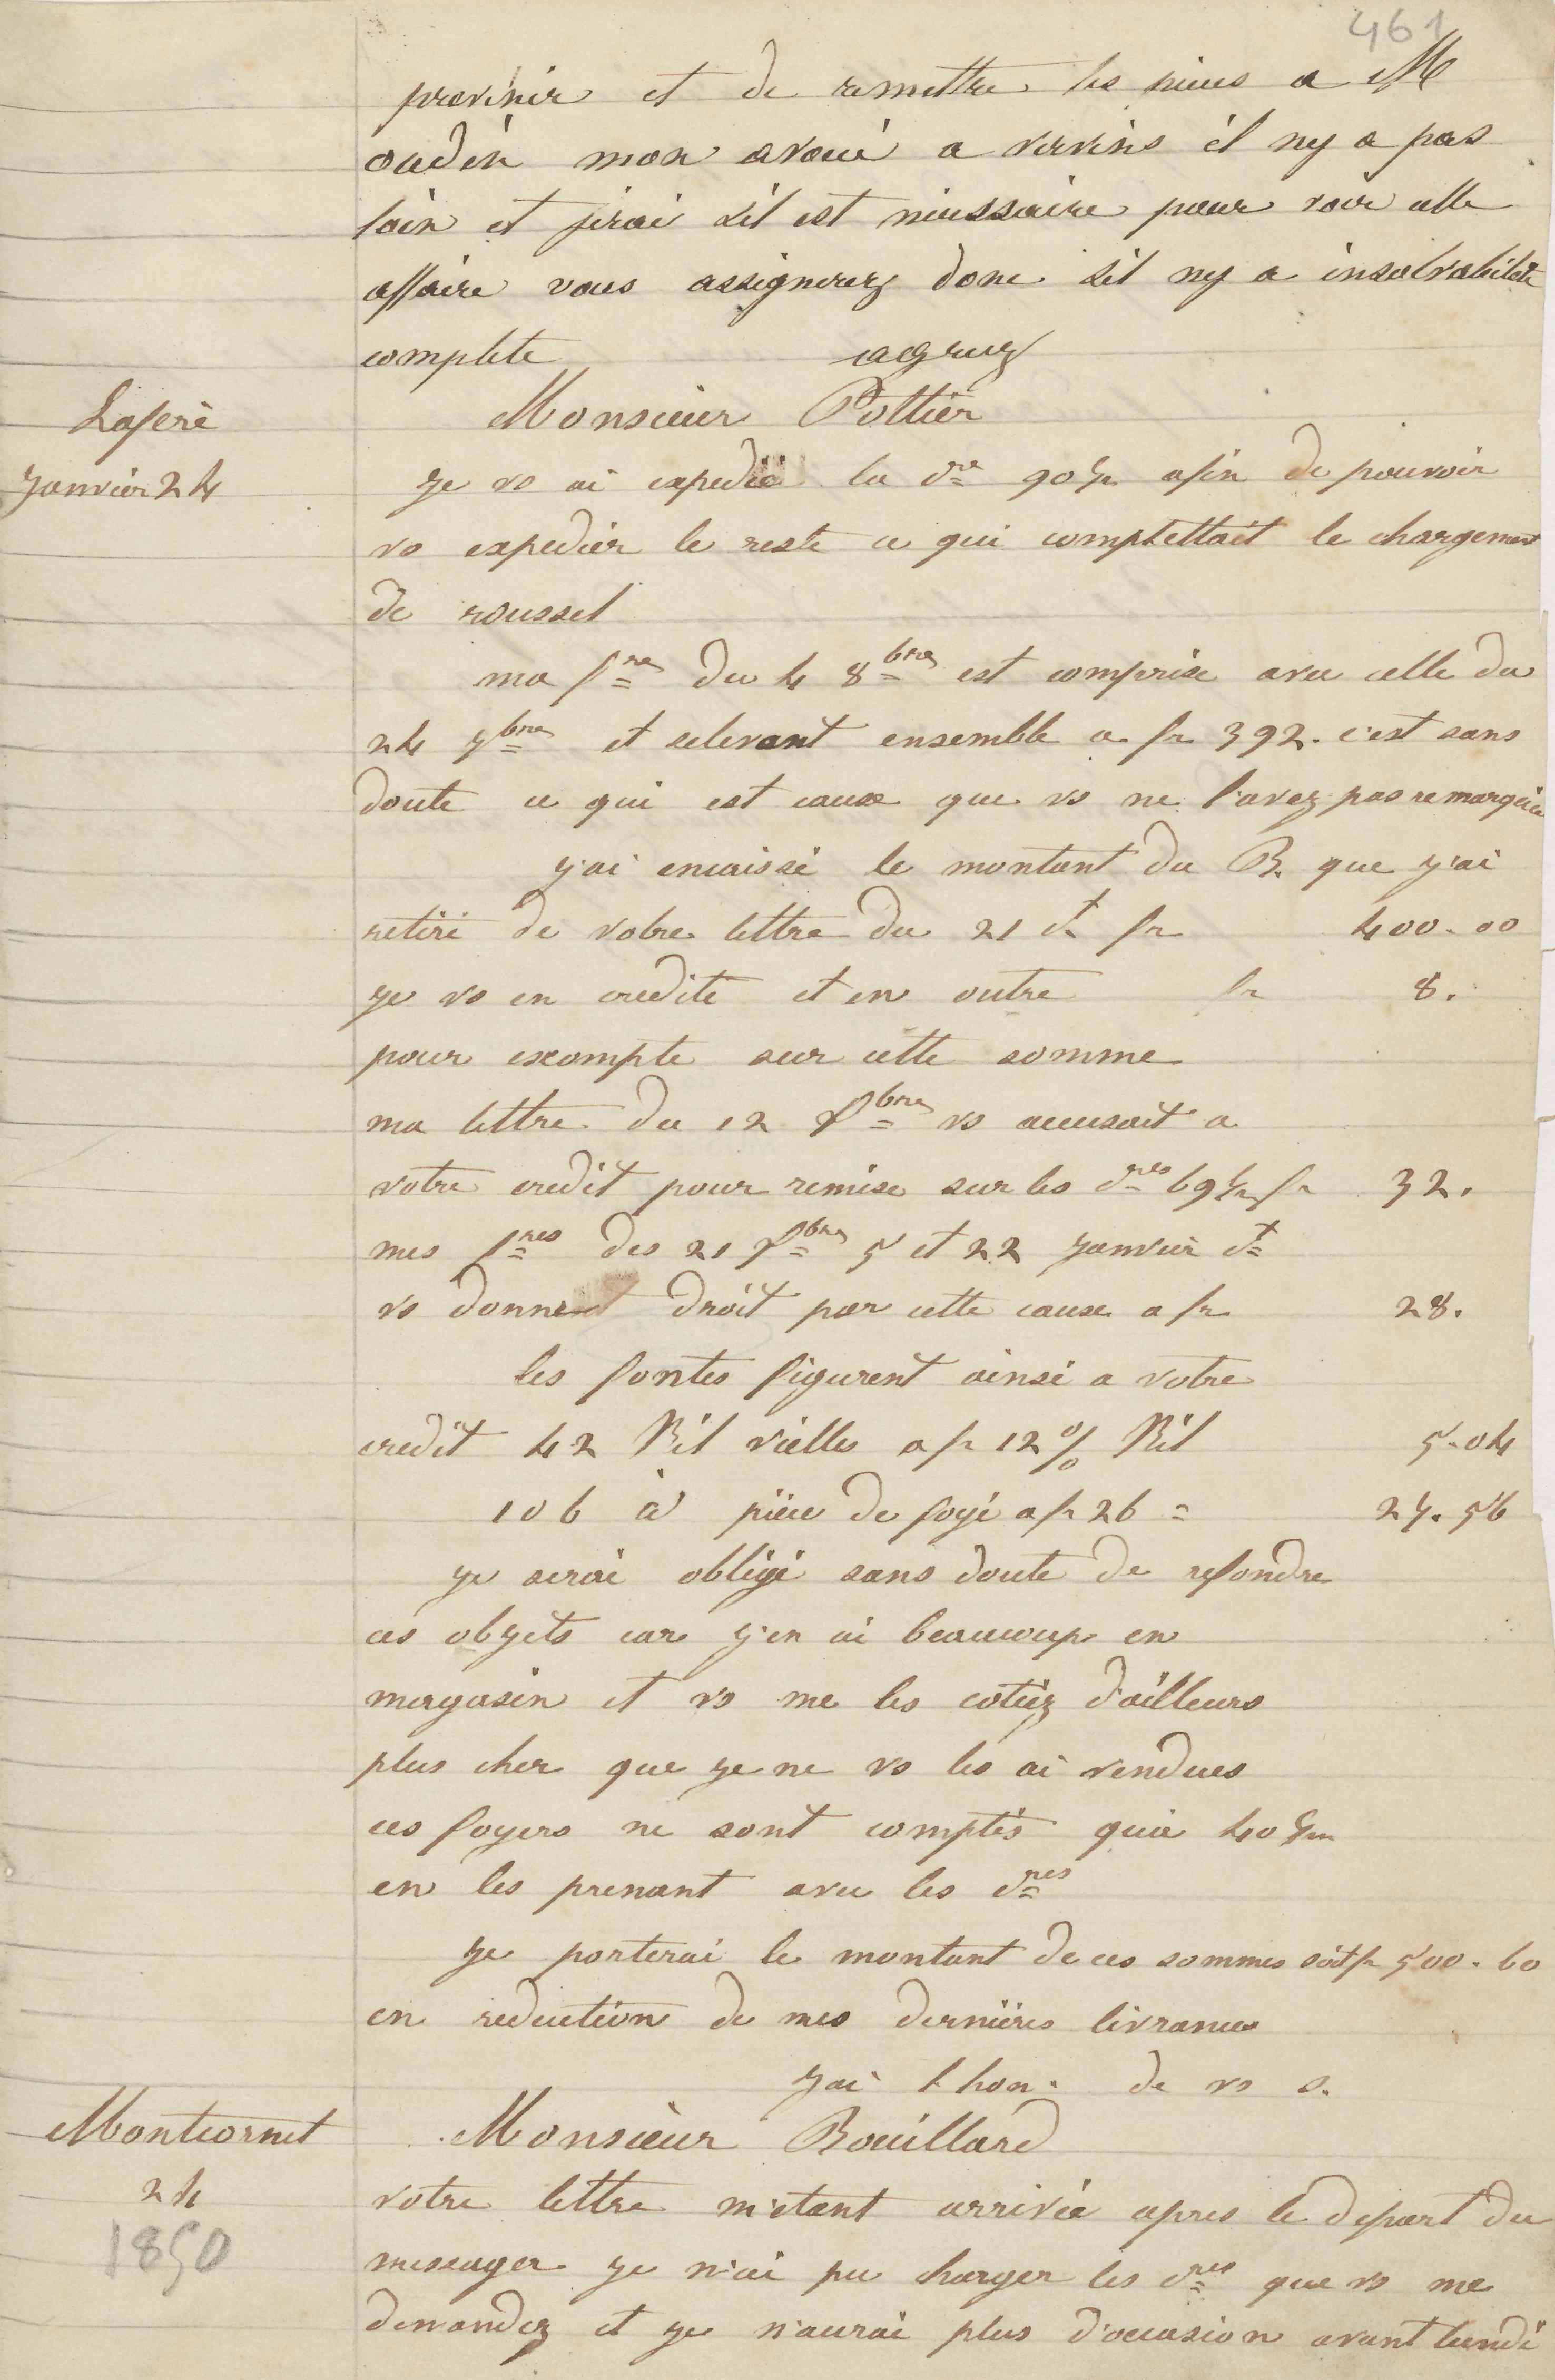 461
prevenir et de remettre les pieces a M
oudin mon avoué a vervins il ny a pas
loin et jirai sil est niecssaire pour voir cette
affaire vous assignerez donc sil ny a insolvabilité
complete agreez
Lafere
Janvier 24
Monsieur Pottier
je vs ai expedié la dre 90 fr afin de pouvoir
vs expedier le reste ce qui complettait le chargement
de roussel
ma fre du 4 8bre est comprise avec celle du
24 7bre et selevant ensemble a fr 392. c'est sans
doute ce qui est cause que vs ne l'avez pas remarquée
j'ai encaissé le montant du B. que j'ai
retiré de votre lettre du 21 ct fr 400.00
je vs en credite et en outre fr 8.
pour excompte sur cette somme
ma lettre du 12 Xbre vs accusait a
votre credit pour remise sur les dres 69 fr 32.
mes fres des 21 Xbre 5 et 22 janvier ct
vs donnent droit par cette cause a fr 28.
les fontes figurent ainsi a votre
credit 42 Kil vielles a fr 12 % Kil 5.04
106 à piece de foyé a fr 26 = 27.56
je serai obligé sans doute de refondre
ces objets car j'en ai beaucoup en
magasin et vs me les cotiez d'ailleurs
plus cher que je ne vs les ai vendues
ces foyers ne sont comptés qu'a 40
en les prenant avec les dres
je porterai le montant de ces sommes soit fr 500.60
en reduction de mes dernières livrances
j'ai l hon. de vs s.
Montcornet
24
1850
Monsieur Bouillard
votre lettre m'etant arrivée apres le depart du
messager je n'ai pu charger les dres que vs me
demandez et je n'aurai plus d'occasion avant lundi